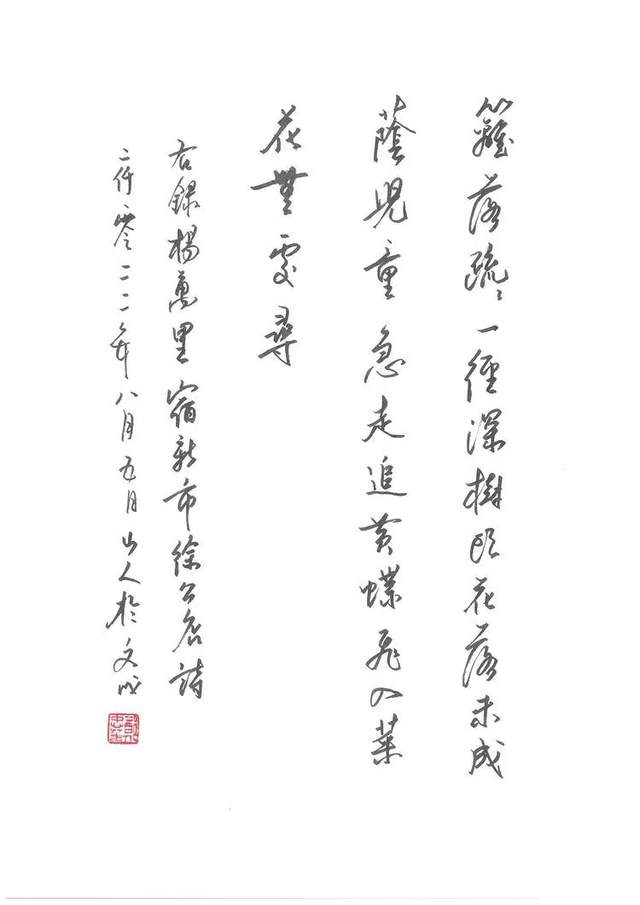 籬落疏〻一徑深樹頭花落未成
蔭兒童急走追黃蝶飛入菜
花無處尋
右錄楊萬里宿新市徐公店詩
二仟零二二年八月五日山人於文